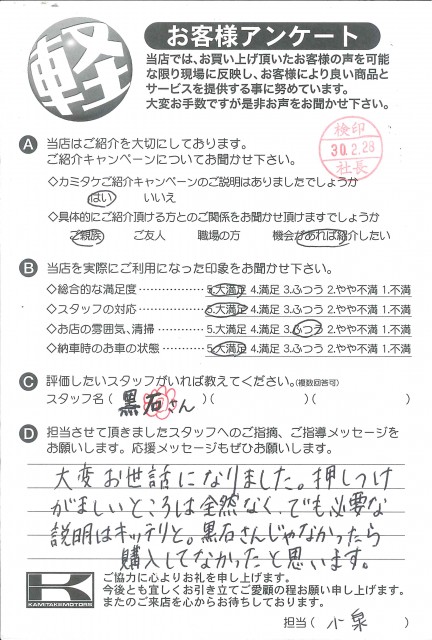 軽
お客様アンケート
当店では、お買い上げ頂いたお客様の声を可能
な限り現場に反映し、お客様により良い商品と
サービスを提供する事に努めています。
大変お手数ですが是非お声をお聞かせ下さい。
検印
30.2.28
社長
A 当店はご紹介を大切にしております。
ご紹介キャンペーンについてお聞かせ下さい。
◇カミタケご紹介キャンペーンのご説明はありましたでしょうか
はい いいえ
◇具体的にご紹介頂ける方とのご関係をお聞かせ頂けますでしょうか
ご親族 ご友人 職場の方 機会があれば紹介したい
B 当店を実際にご利用になった印象をお聞かせ下さい。
◇総合的な満足度………………5.大満足 4.満足 3.ふつう 2.やや不満 1.不満
◇スタッフの対応………………5.大満足 4.満足 3.ふつう 2.やや不満 1.不満
◇お店の雰囲気、清掃…………5.大満足 4.満足 3.ふつう 2.やや不満 1.不満
◇納車時のお車の状態…………5.大満足 4.満足 3.ふつう 2.やや不満 1.不満
C 評価したいスタッフがいれば教えてください。(複数回答可)
スタッフ名(黒石さん)( )( )
D 担当させて頂きましたスタッフへのご指摘、ご指導メッセージを
お願いします。応援メッセージもぜひお願いします。
大変お世話になりました。押しつけ
がましいところは全然なく、でも必要な
説明はキッチリと。黒石さんじゃなかったら
購入してなかったと思います。
K
KAMITAKEMOTORS
ご協力に心よりお礼を申し上げます。
今後とも宜しくお引き立てご愛顧の程お願い申し上げます。
またのご来店を心からお待ちしております。
担当(小泉)